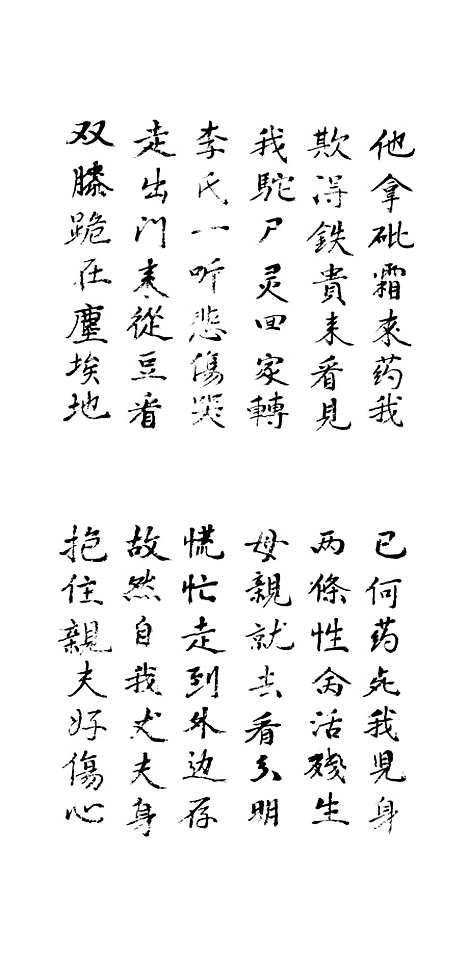 他拿砒霜來药我
欺得鉄貴来看見
我駝尸灵回家轉
李氏一听悲傷哭
走出门来從豆看
双膝跪在塵埃地
已何药死我児身
两條性命活殘生
母親就去看分明
慌忙走到外边存
故然自我丈夫身
抱住親夫好傷心